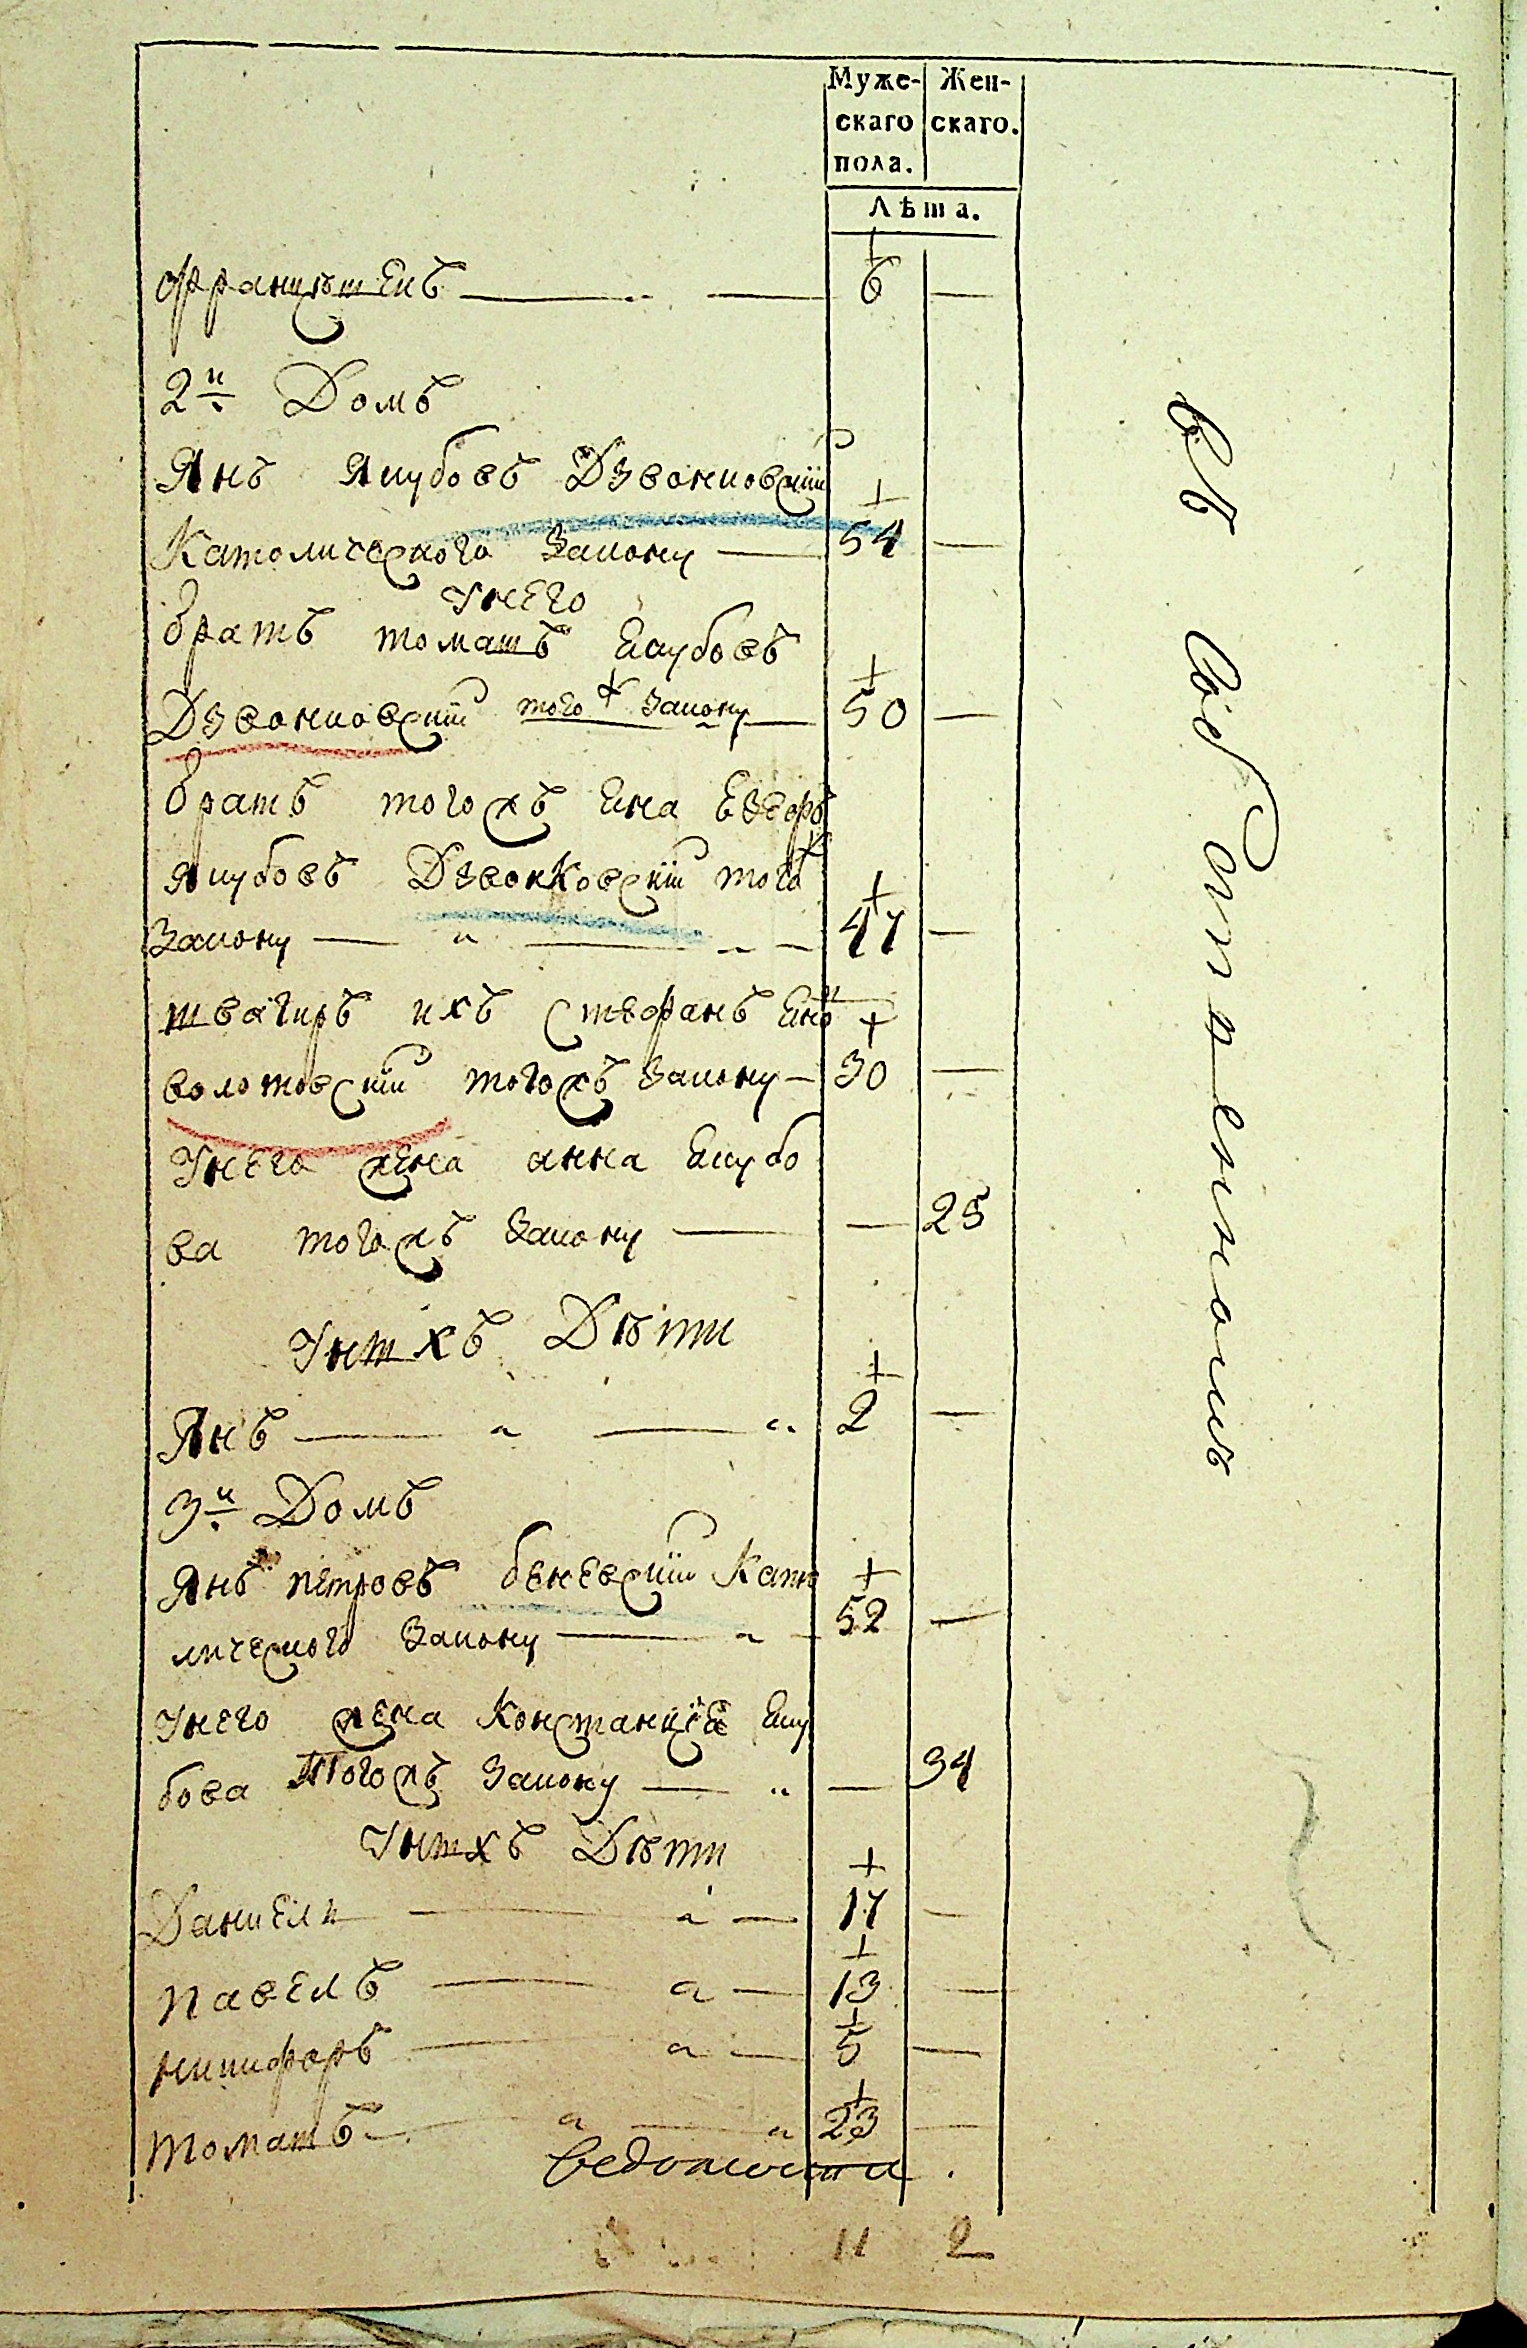 Муже- Жен-
скаго скаго.
пола.
Лѣта.
Францѣшекъ 6 —
2й Домъ
Янъ Якубовъ Дзвонковскій
Католического Закону — 54 —
У него
братъ томашъ Екубовъ
Дзвонковскій того ж Закону — 50 —
братъ тогожъ Яна
Якубовъ Дзвонковскій того ж
Закону — 47 —
швагиръ ихъ Стефанъ
волотовскій тогожъ Закону — 30 —
У него жена анна Екубо
ва тогожъ Закону — — 25
У нихъ Дѣти
Янъ — 2 —
3й Домъ
Янъ петровъ беневскій Като
лического Закону — 52 —
У него жена Констанція Еку
бова тогожъ Закону — — 34
У нихъ Дѣти
Даниель — 17 —
павелъ — 13 —
никифоръ — 5 —
томашъ — 23 —
ведомости
11 2
въ